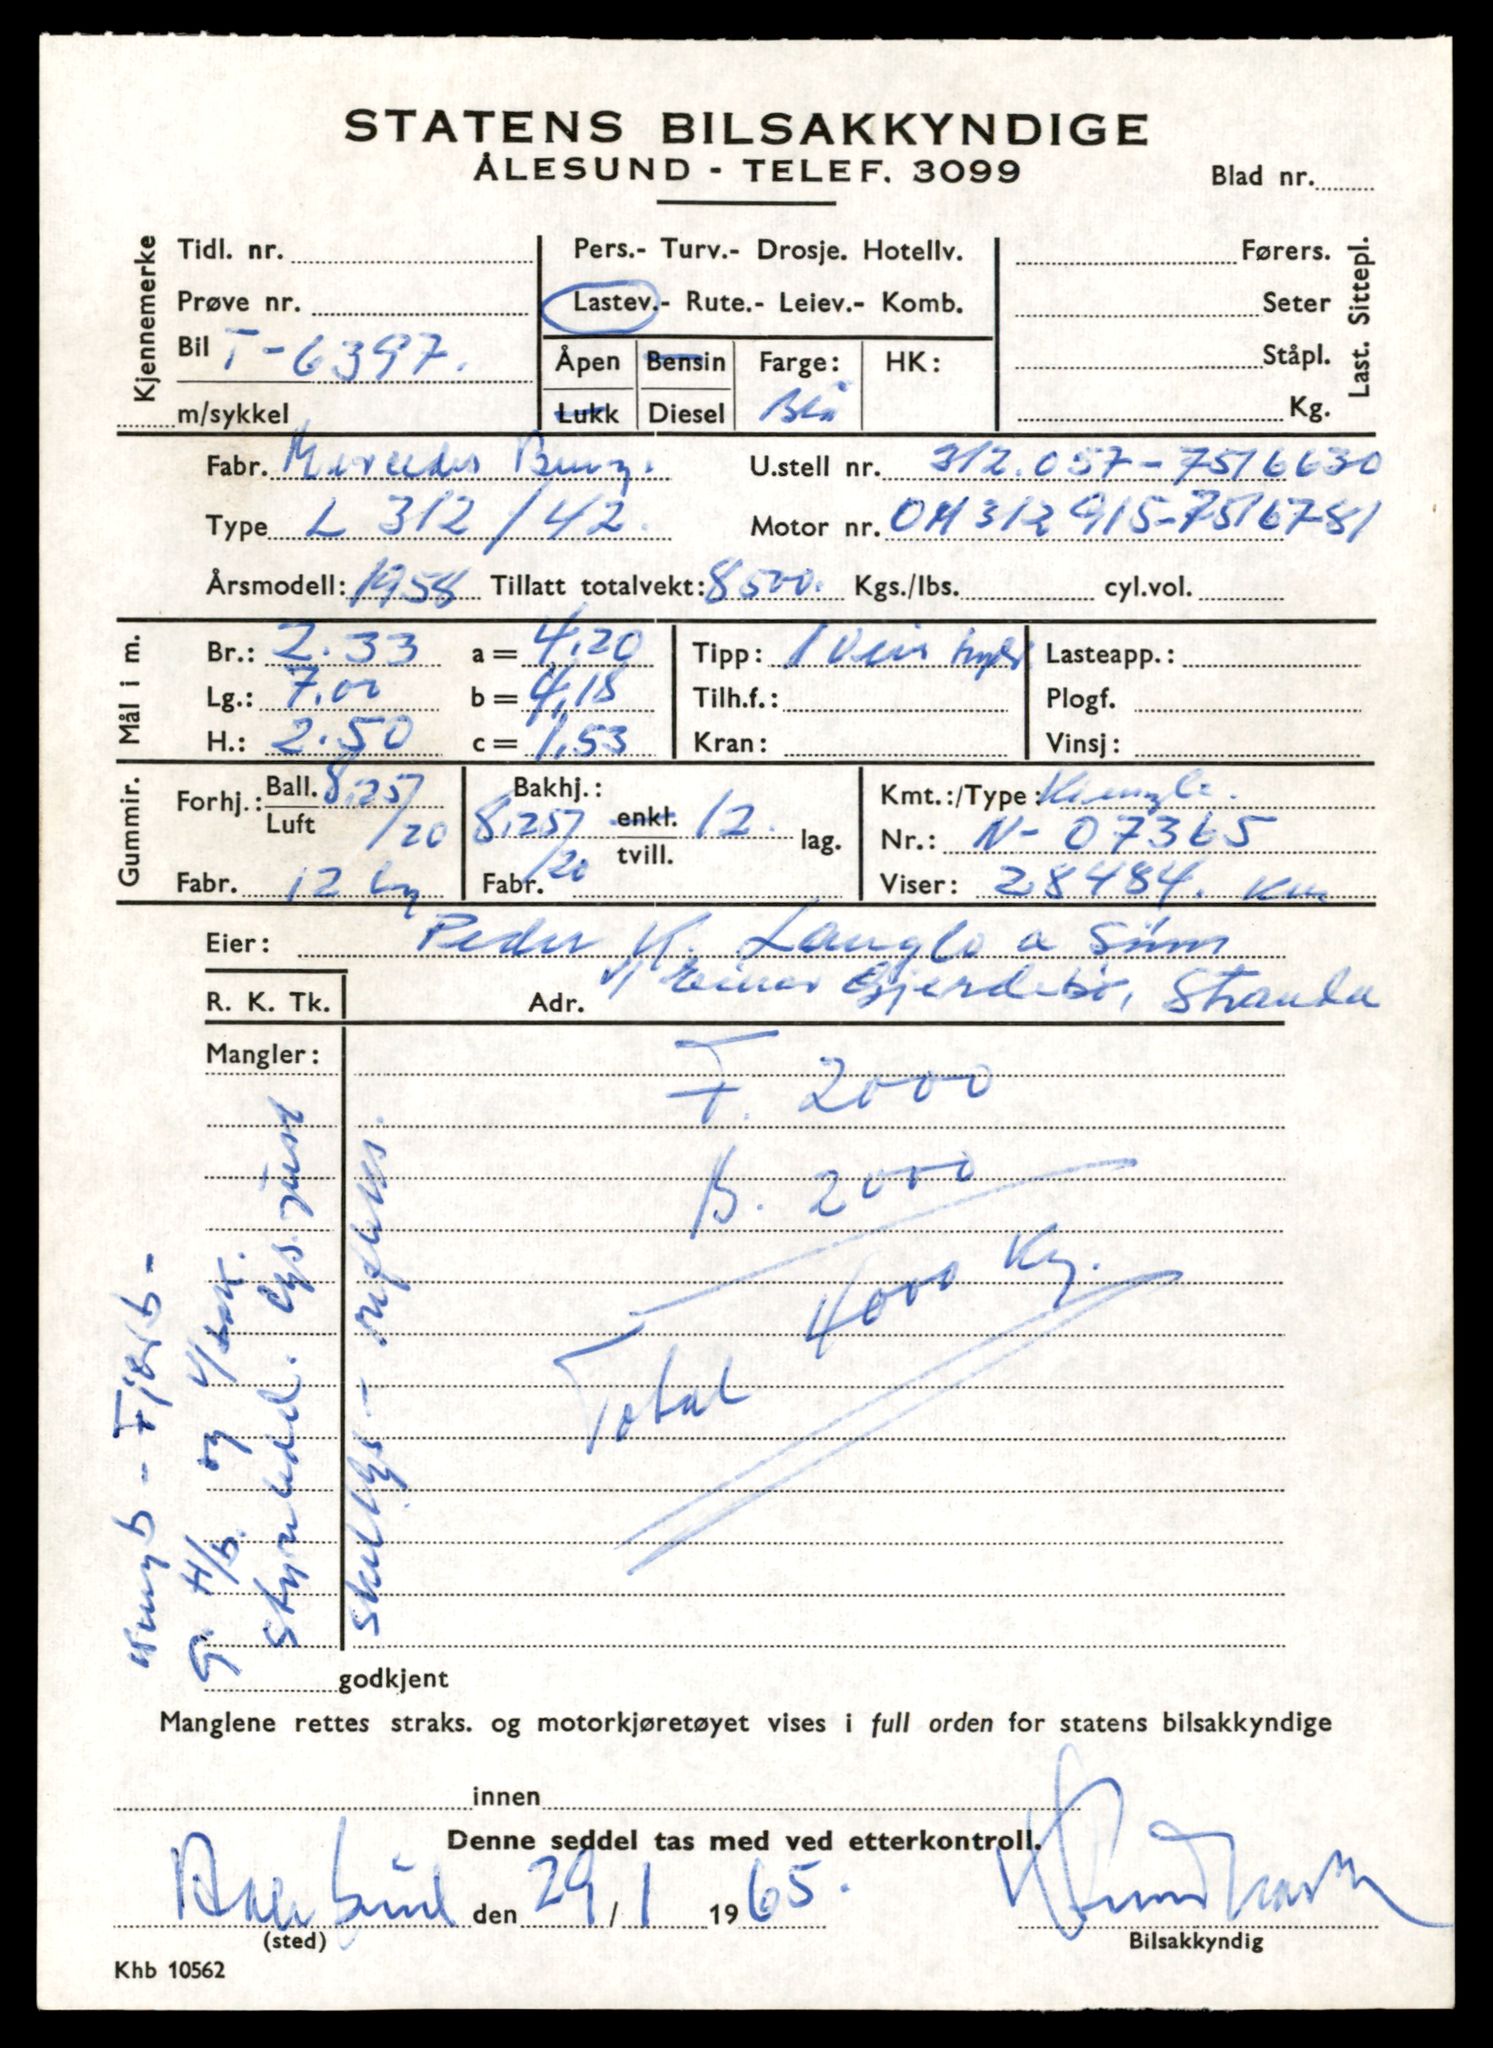 STATENS BILSAKKYNDIGE
ÅLESUND - TELEF. 3099
Blad nr.
Kjennemerke
Tidl. nr.
Prøve nr.
Bil T-6397.
m/sykkel
Pers.- Turv.- Drosje. Hotellv.
Lastev.- Rute.- Leiev.- Komb.
Åpen Bensin Farge: HK:
Lukk Diesel Blå
Førers.
Seter
Ståpl.
Kg.
Last. Sittepl.
Fabr. Mercedes Benz. U.stell nr. 312.057-7516630
Type L 312/42. Motor nr. OM312915-7516781
Årsmodell: 1958 Tillatt totalvekt: 8500. Kgs./lbs. cyl.vol.
Mål i m.
Br.: 2.33 a = 4,20 Tipp: 1 Lasteapp.:
Lg.: 7,00 b = 4,18 Tilh.f.: Plogf.
H.: 2.50 c = 1,53 Kran: Vinsj:
Gummir.
Forhj.: Ball. 8,25/20 Luft
Fabr. 12 lag
Bakhj.: 8,25/20 enkl. tvill. 12. lag.
Fabr.
Kmt.:/Type: Kienzle.
Nr.: N-07365
Viser: 28484. km
Eier: Peder K. Langlo a Sønn
R. K. Tk. Adr. v/ Einar Gjerdebø, Stranda
Mangler:
F. 2000
B. 2000
Total 4000 Kg.
og
skiltlys - refleks.
godkjent
Manglene rettes straks. og motorkjøretøyet vises i full orden for statens bilsakkyndige
innen
Denne seddel tas med ved etterkontroll.
Aalesund den 29/1 1965.
(sted)
Bilsakkyndig
Khb 10562